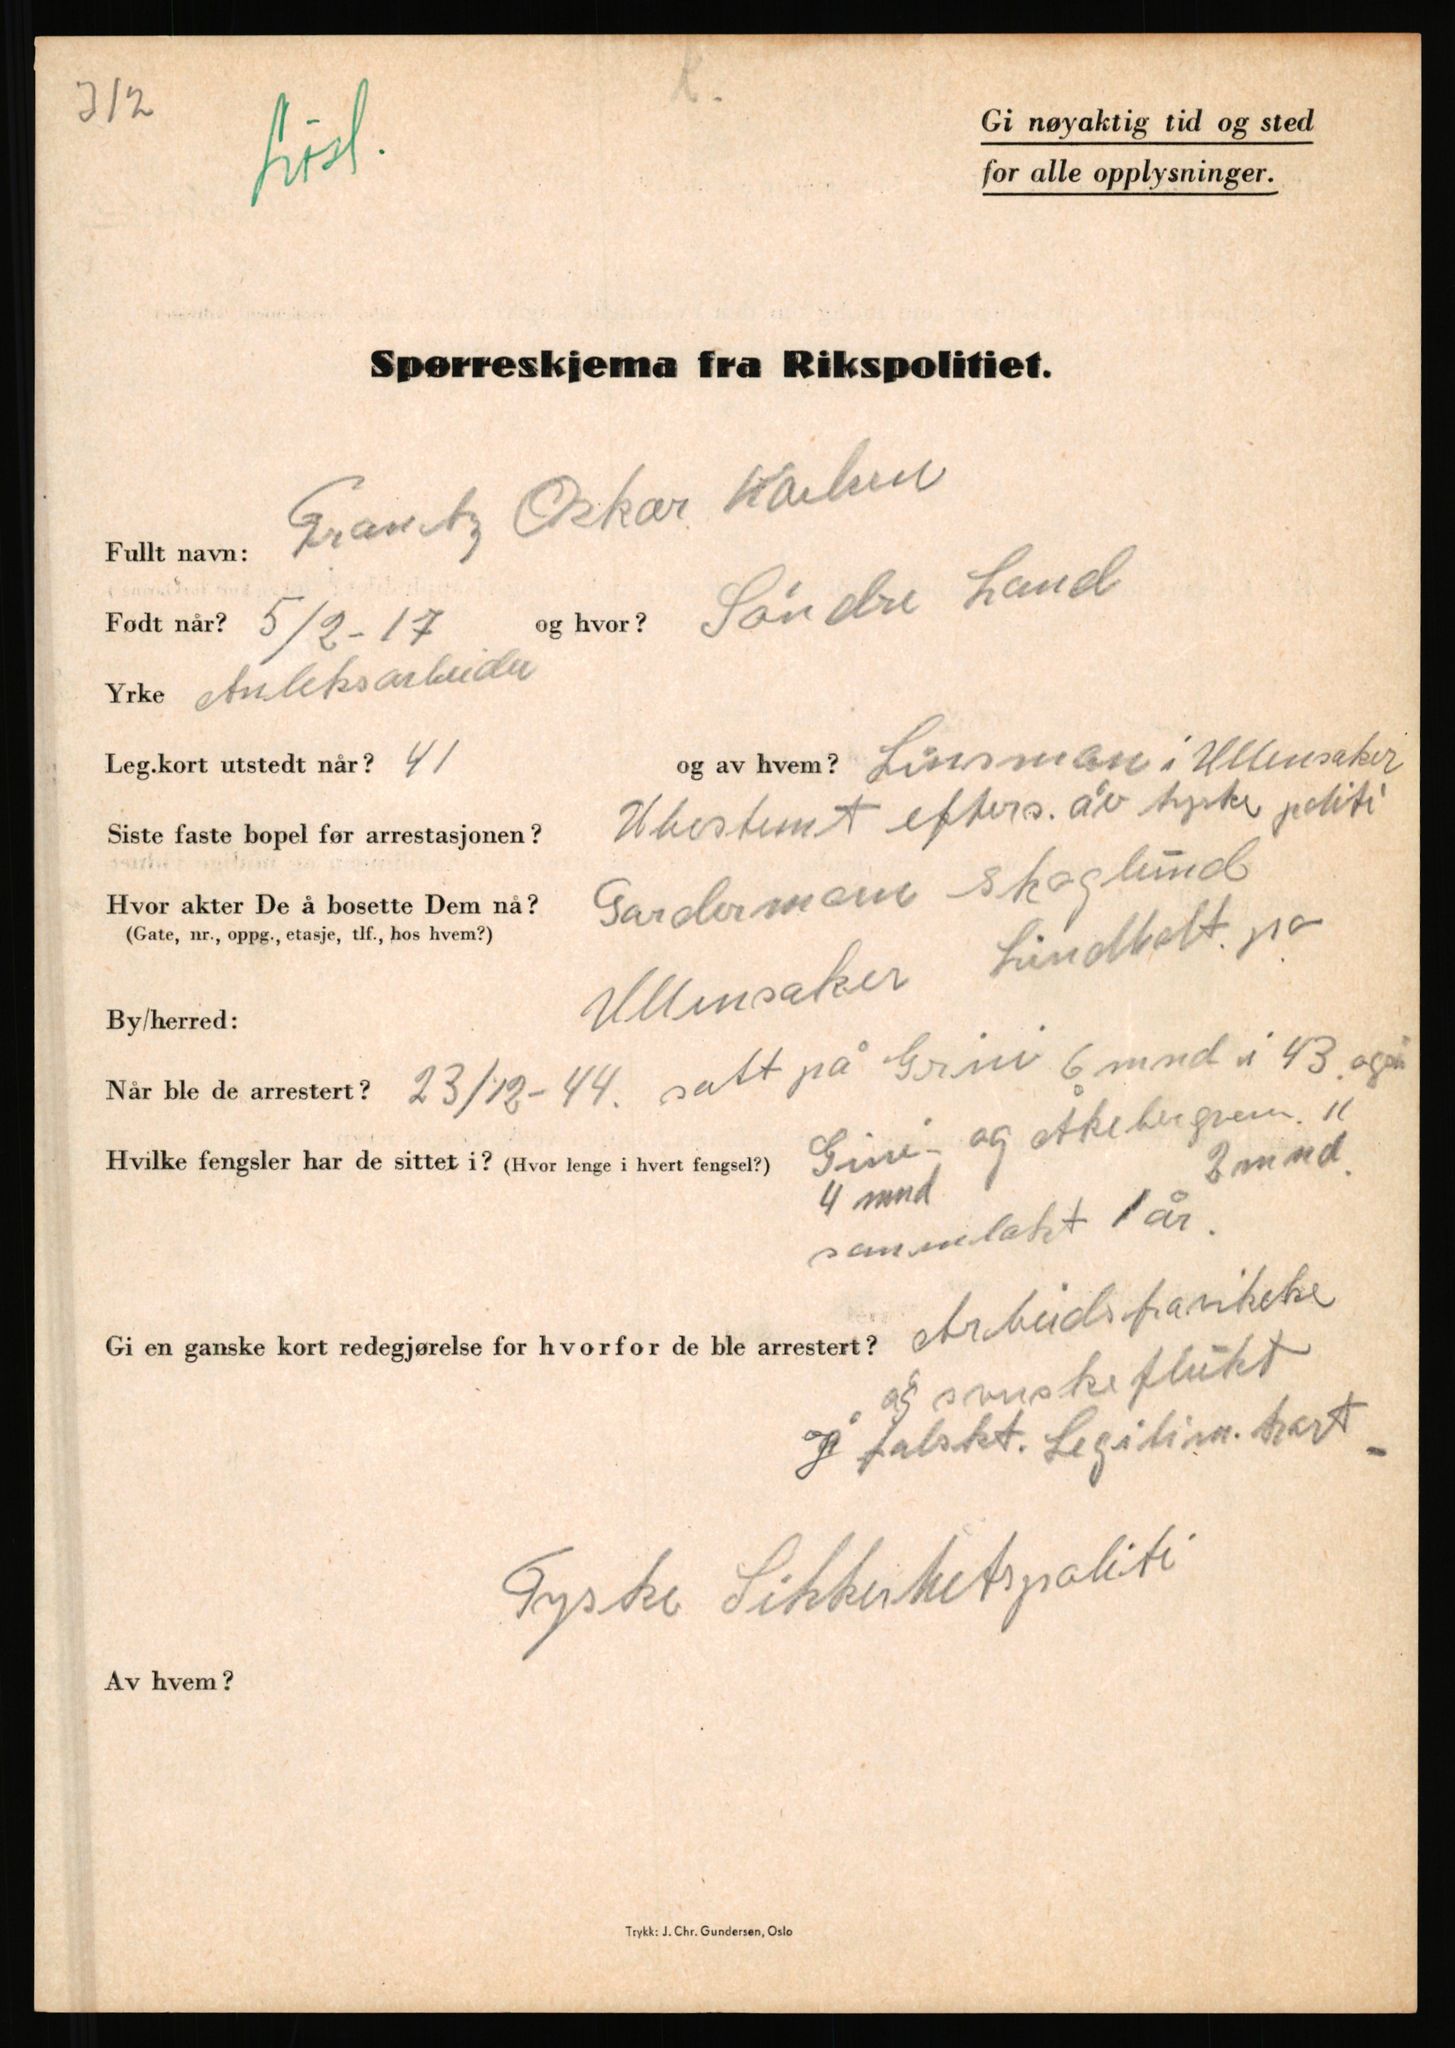 312
Løsl.
K.
Gi nøyaktig tid og sted
for alle opplysninger.
Spørreskjema fra Rikspolitiet.
Fullt navn: Frantz Oskar Karlsen
Født når? 5/2-17 og hvor? Søndre Land
Yrke Anleksarbeider
Leg.kort utstedt når? 41 og av hvem? Linsman i Ullensaker
Siste faste bopel før arrestasjonen? Ubestemt efters. av tyske politi
Hvor akter De å bosette Dem nå? Gardermoen Skoglund
(Gate, nr., oppg., etasje, tlf., hos hvem?)
By/herred: Ullensaker
Når ble de arrestert? 23/12-44. satt på Grini 6 mnd i 43. også
Hvilke fengsler har de sittet i? (Hvor lenge i hvert fengsel?) Grini- og Åkebergveien. 11
4 mnd 2 mnd.
sammlakt 1 år.
Gi en ganske kort redegjørelse for hvorfor de ble arrestert? Arbeids
og svenskeflukt
og falskt. Legitim. kart -
Tyske Sikkerhetspoliti
Av hvem?
Trykk: J. Chr. Gundersen, Oslo